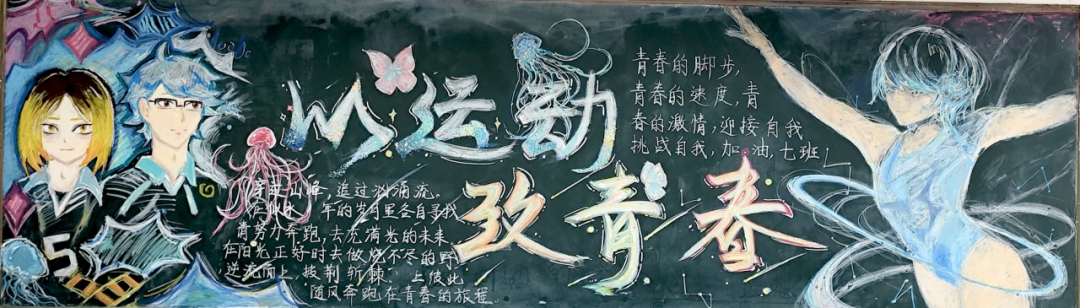 以运动
致青春
青春的脚步,
青春的速度,青
春的激情,迎接自我
挑战自我,加油,七班!
穿过山峰,追过汹涌流。
年的岁月里各自寻找
肯努力奔跑,去充满光的未来
在阳光正好时去做烧不尽的野
逆流而上,披荆斩棘, 上彼此
随风奔跑在青春的旅程。
5